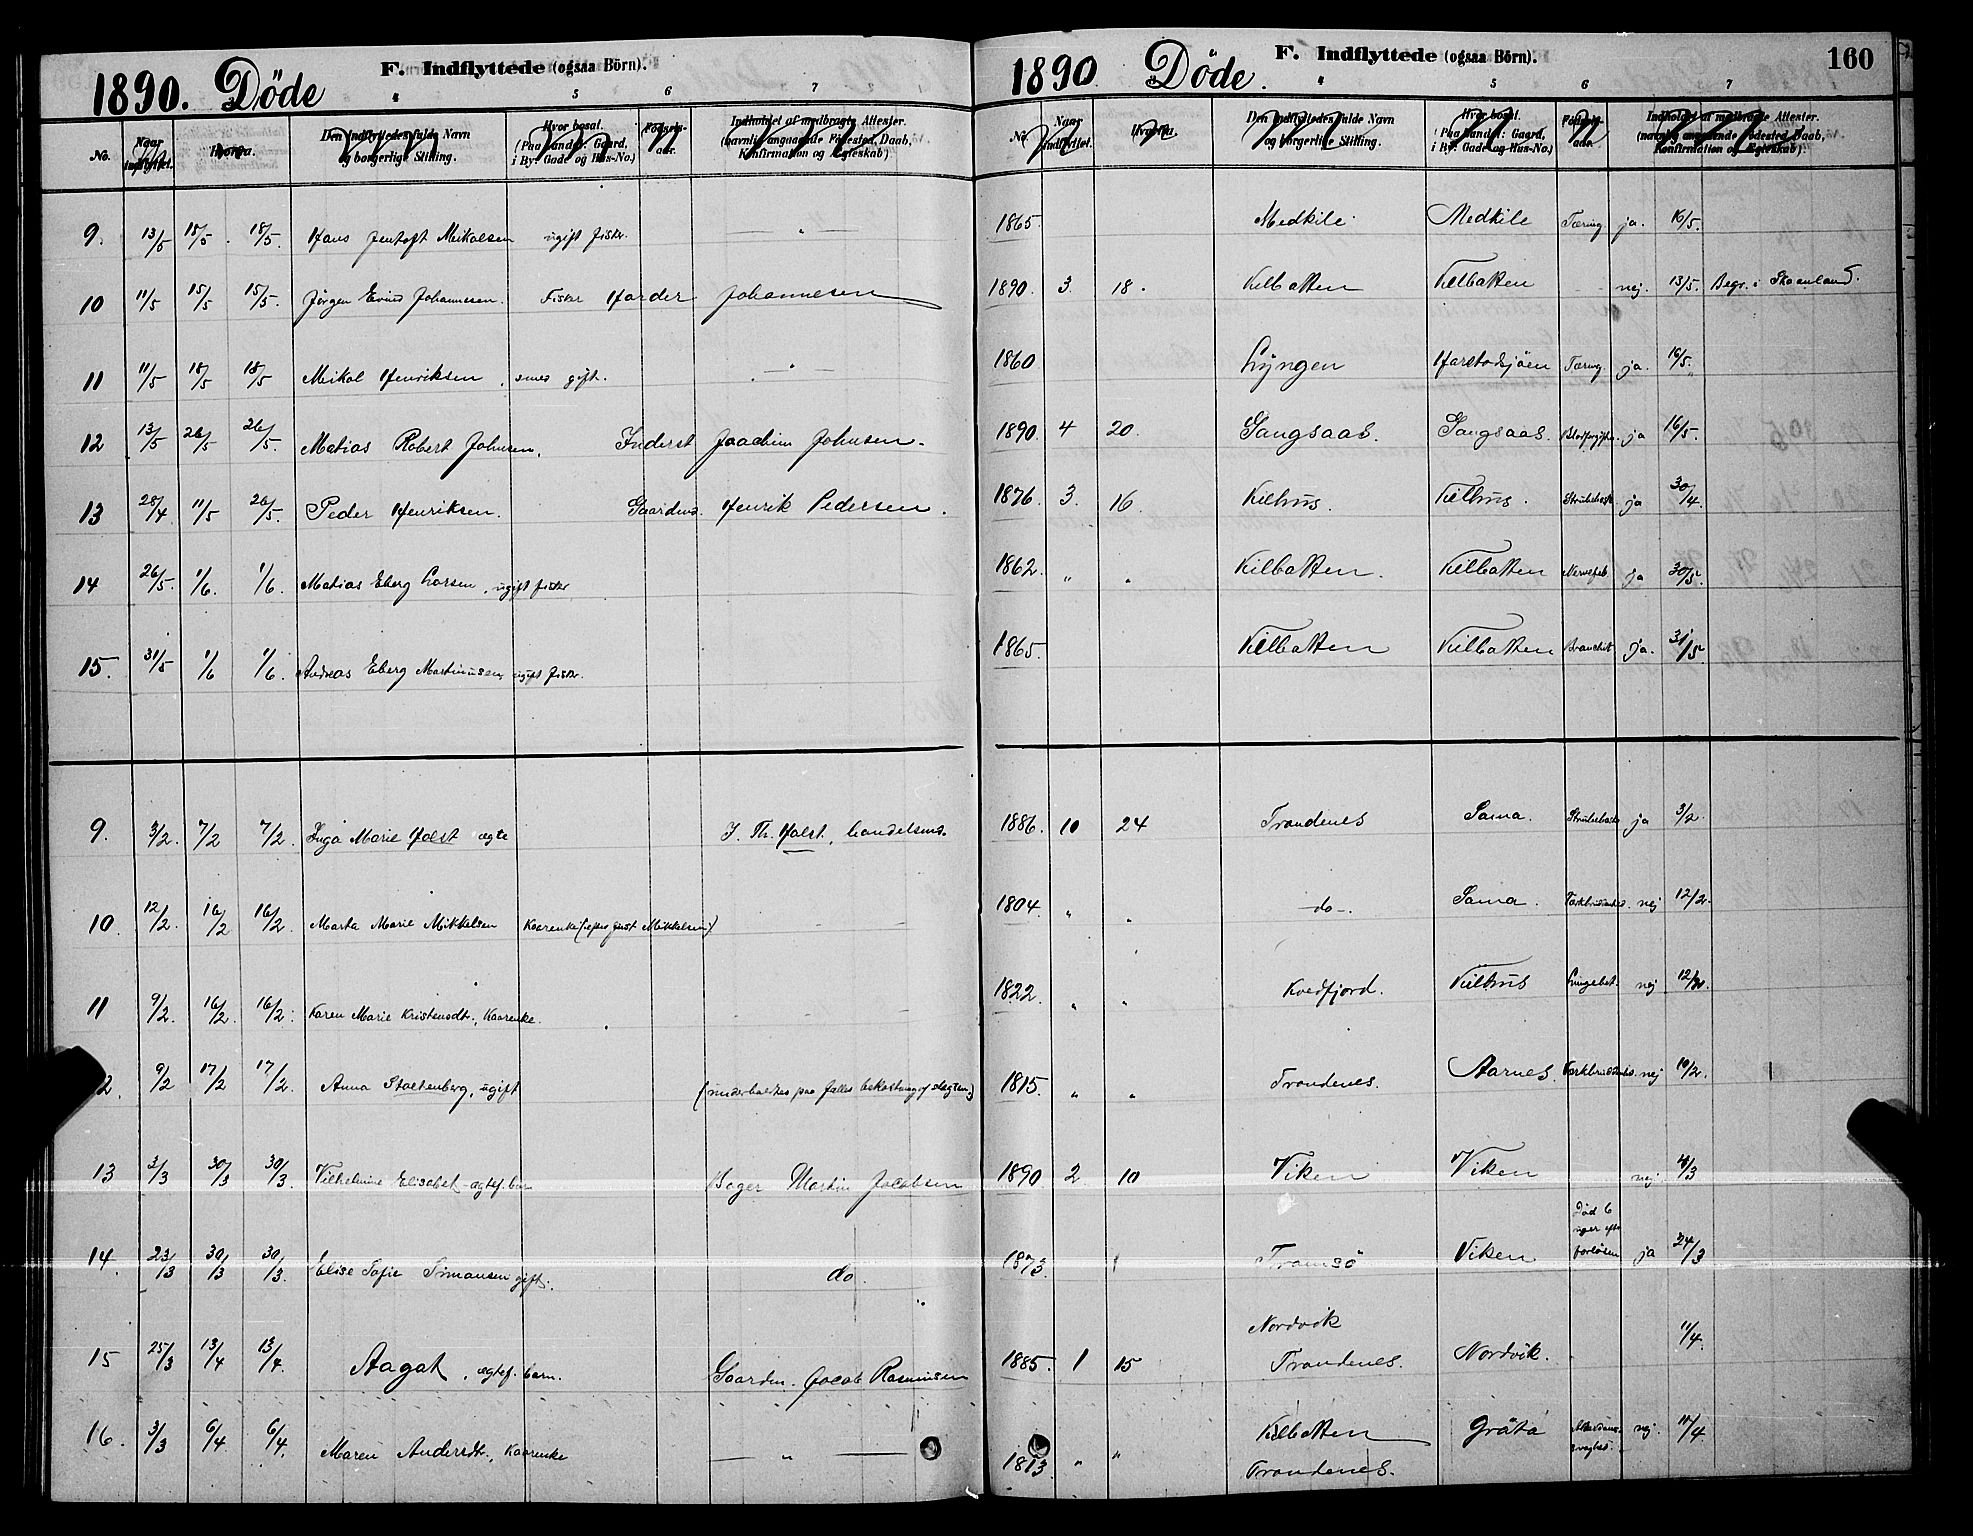 1890. Döde
F. Indflyttede (ogsaa Börn).
4 5 6 7
No. Naar indflyttet. Hvorfra. Den Indflyttedes fulde Navn og borgerlige Stilling. Hvor bosat. (Paa Landet: Gaard, i By: Gade og Hus-No.) Födsels-aar. Indholdet af medbragte Attester. (navnlig angaaende Födested, Daab, Konfirmation og Egteskab)
9. 13/5 18/5. 18/5. Hans Jentoft Mikalsen ugift fisker. — " —
10 11/5 15/5 15/5. Jörgen Eivind Johannesen. Fisker Harder Johannesen
11 11/5 18/5 18/5 Mikal Henriksen, smed gift. — " —
12 13/5 26/5 26/5. Matias Robert Johnsen. Inderst Joachim Johnsen.
13 28/4 11/5 26/5. Peder Henriksen. Gaardmd. Henrik Pedersen.
14 26/5. 1/6. 1/6. Matias Eberg Larsen, ugift fisker
15. 31/5 1/6 1/6. Andreas Eberg Martinusen, ugift fisker.
9. 3/2. 7/2 7/2. Inga Marie Holst ægte J. Th. Holst, handelsmd.
10. 12/2. 16/2 16/2. Marta Marie Mikkelsen Kaarenke (Jeper Just Mikkelsen)
11 9/2. 16/2. 16/2. Karen Marie Kristensdtr., Kaarenke.
2. 9/2 17/2 17/2. Anna Stoltenberg, ugift (underholdtes paa fælles bekostning af slægten)
13 3/3 30/3 30/3. Vilhelmine Elisabet ægtef. barn Bager Martin Jacobsen
14. 23/3 30/3 30/3. Elise Sofie gift. do.
15 25/3 13/4 13/4. Aagot, ægtef. barn. Gaardm. Jacob Rasmussen
16. 3/3 6/4 6/4. Maren Andersdtr., Kaarenke — " —
1890 Döde.
F. Indflyttede (ogsaa Börn).
160
4 5 6 7
No. Naar indflyttet. Hvorfra. Den Indflyttedes fulde Navn og borgerlige Stilling. Hvor bosat. (Paa Landet: Gaard, i By: Gade og Hus-No.) Födsels-aar. Indholdet af medbragte Attester. (navnlig angaaende Födested, Daab, Konfirmation og Egteskab)
1865. Medkile. Medkile Tæring ja. 16/5.
1890. 3. 18. Kilbotten Kilbotten nej. 13/5. Begr. i Skaanland.
1860 Lyngen Harstadsjöen Tæring ja. 16/5.
1890. 4 20. Gangsaas. Gangsaas. Blodforgiftn. ja 16/5.
1876. 3. 16. Kilhus. Kilhus. Strubehoste ja 30/4.
1862. " " Kilbotten. Kilbotten Nervefeb. ja 30/5.
1865. Kilbotten Kilbotten ja. 31/5.
1886. 10 24 Trondenes Sama. Strubehoste ja 3/2.
1804. " " —do—. Sama. nej 12/2.
1822. " " Kvedfjord. Kilhus Lungebet. nej 12/2.
1815. " " Trondenes. Aarnes. nej 10/2.
1890 2. 10 Viken Viken nej. 4/3
1873. Tromsö Viken Död 6 uger efter forlösen ja 24/3
1885. 1 15 Nordvik Trondenes. Nordvik. 11/4.
1813 " " Kilbotten Trondenes. Gråta nej. 11/4